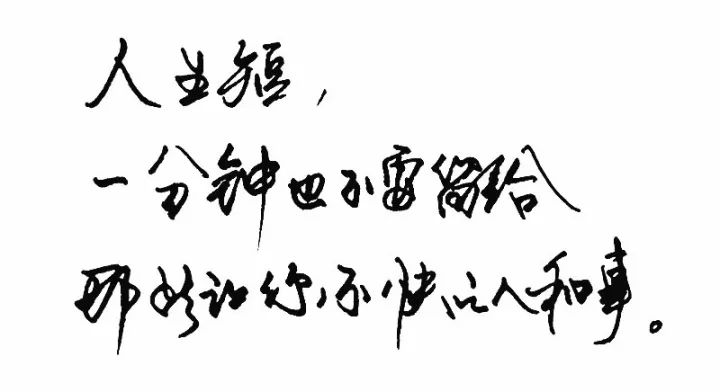 人生短，
一分钟也不要留给
那些让你不快的人和事。